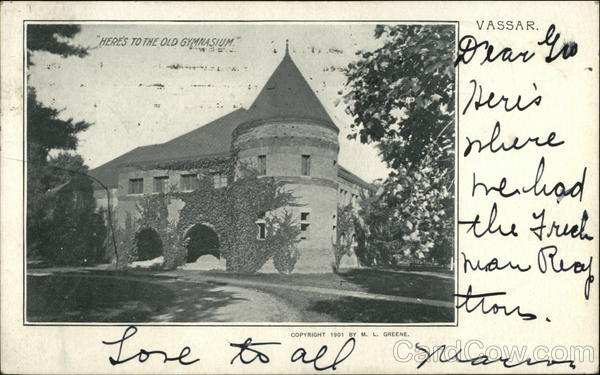 "HERE'S TO THE OLD GYMNASIUM."
VASSAR.
Dear Geo
Here's
where
we had
the Fresh
man Recep
tion.
COPYRIGHT 1901 BY M. L. GREENE.
Love to all Marion
CardCow.com